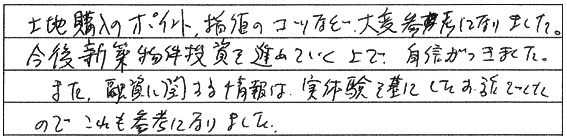 土地購入のポイント、指値のコツなど、大変参考になりました。
今後新築物件投資を進めていく上で、自信がつきました。
また、融資に関する情報は、実体験を基にしたお話でした
のでこれも参考になりました。